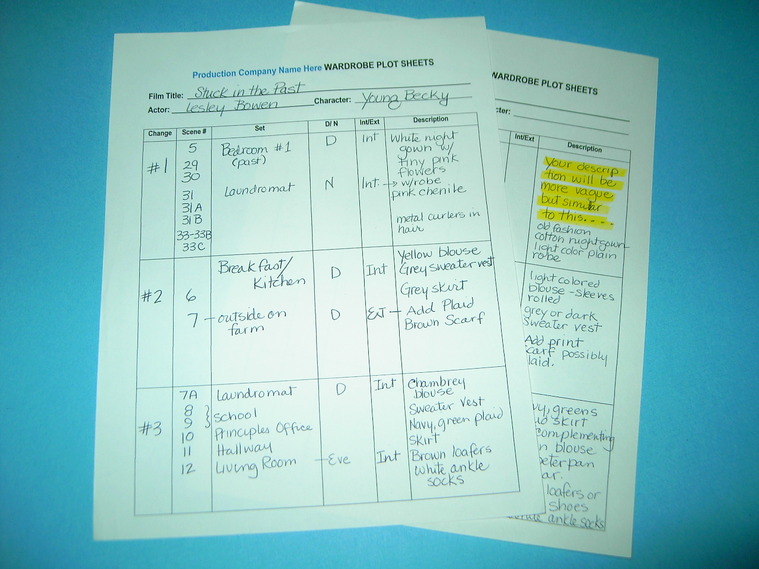 Production Company Name Here WARDROBE PLOT SHEETS
Film Title: Stuck in the Past
Actor: Lesley Bowen Character: Young Becky
Change Scene # Set D/N Int/Ext Description
#1
5 Bedroom #1 D Int White night
(past) gown w/
29 tiny pink
30 flowers
31 Laundromat N Int. → w/robe
pink chenile
31A
31B metal curlers in
hair
33-33B
33C
#2
Breakfast/ D Int Yellow blouse
Kitchen Grey sweater vest
6 Grey skirt
7 - outside on D Ext - Add Plaid
farm Brown Scarf
#3
7A Laundromat D Int Chambrey
blouse
8 } School Sweater Vest
9 Navy, green plaid
10 Principles Office skirt
11 Hallway
12 Living Room - Eve Int Brown loafers
white ankle
socks
WARDROBE PLOT SHEETS
cter:
Int/Ext Description
Your descrip
tion will be
more vague
but similar
to this....
old fashion
cotton nightgown
light color plain
robe
light colored
blouse - sleeves
rolled
grey or dark
sweater vest
Add print
scarf possibly
laid.
vy, greens
skirt
complementing
n blouse
peterpan
ar.
loafers or
shoes
ankle socks